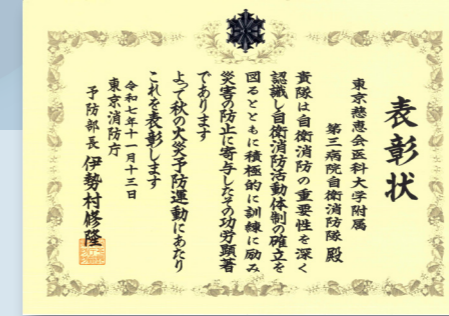 表彰状
東京慈恵会医科大学附属
第三病院自衛消防隊 殿
貴隊は自衛消防の重要性を深く
認識し自衛消防活動体制の確立を
図るとともに積極的に訓練に励み
災害の防止に寄与したその功労顕著
であります
よって秋の火災予防運動にあたり
これを表彰します
令和七年十一月十三日
東京消防庁
予防部長 伊勢村修隆